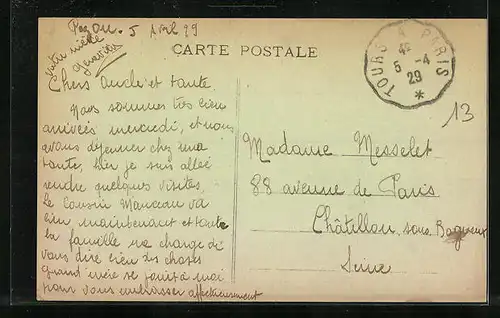 5 Avril 29
votre nièce
CARTE POSTALE
TOURS A PARIS
4e
5 -4
29
*
13
Chers oncle et tante.
Nous sommes très bien
arrivés mercredi, et nous
avons déjeuner chez ma
tante, hier je suis allée
rendre quelques visites.
Le Cousin Manceau va
bien maintenant et toute
la famille me charge de
vous dire bien des choses
grand'mère se joint à moi
pour vous embrasser affectueusement
Madame Messelet
88 avenue de Paris
Châtillon, sous Bagneux
Seine